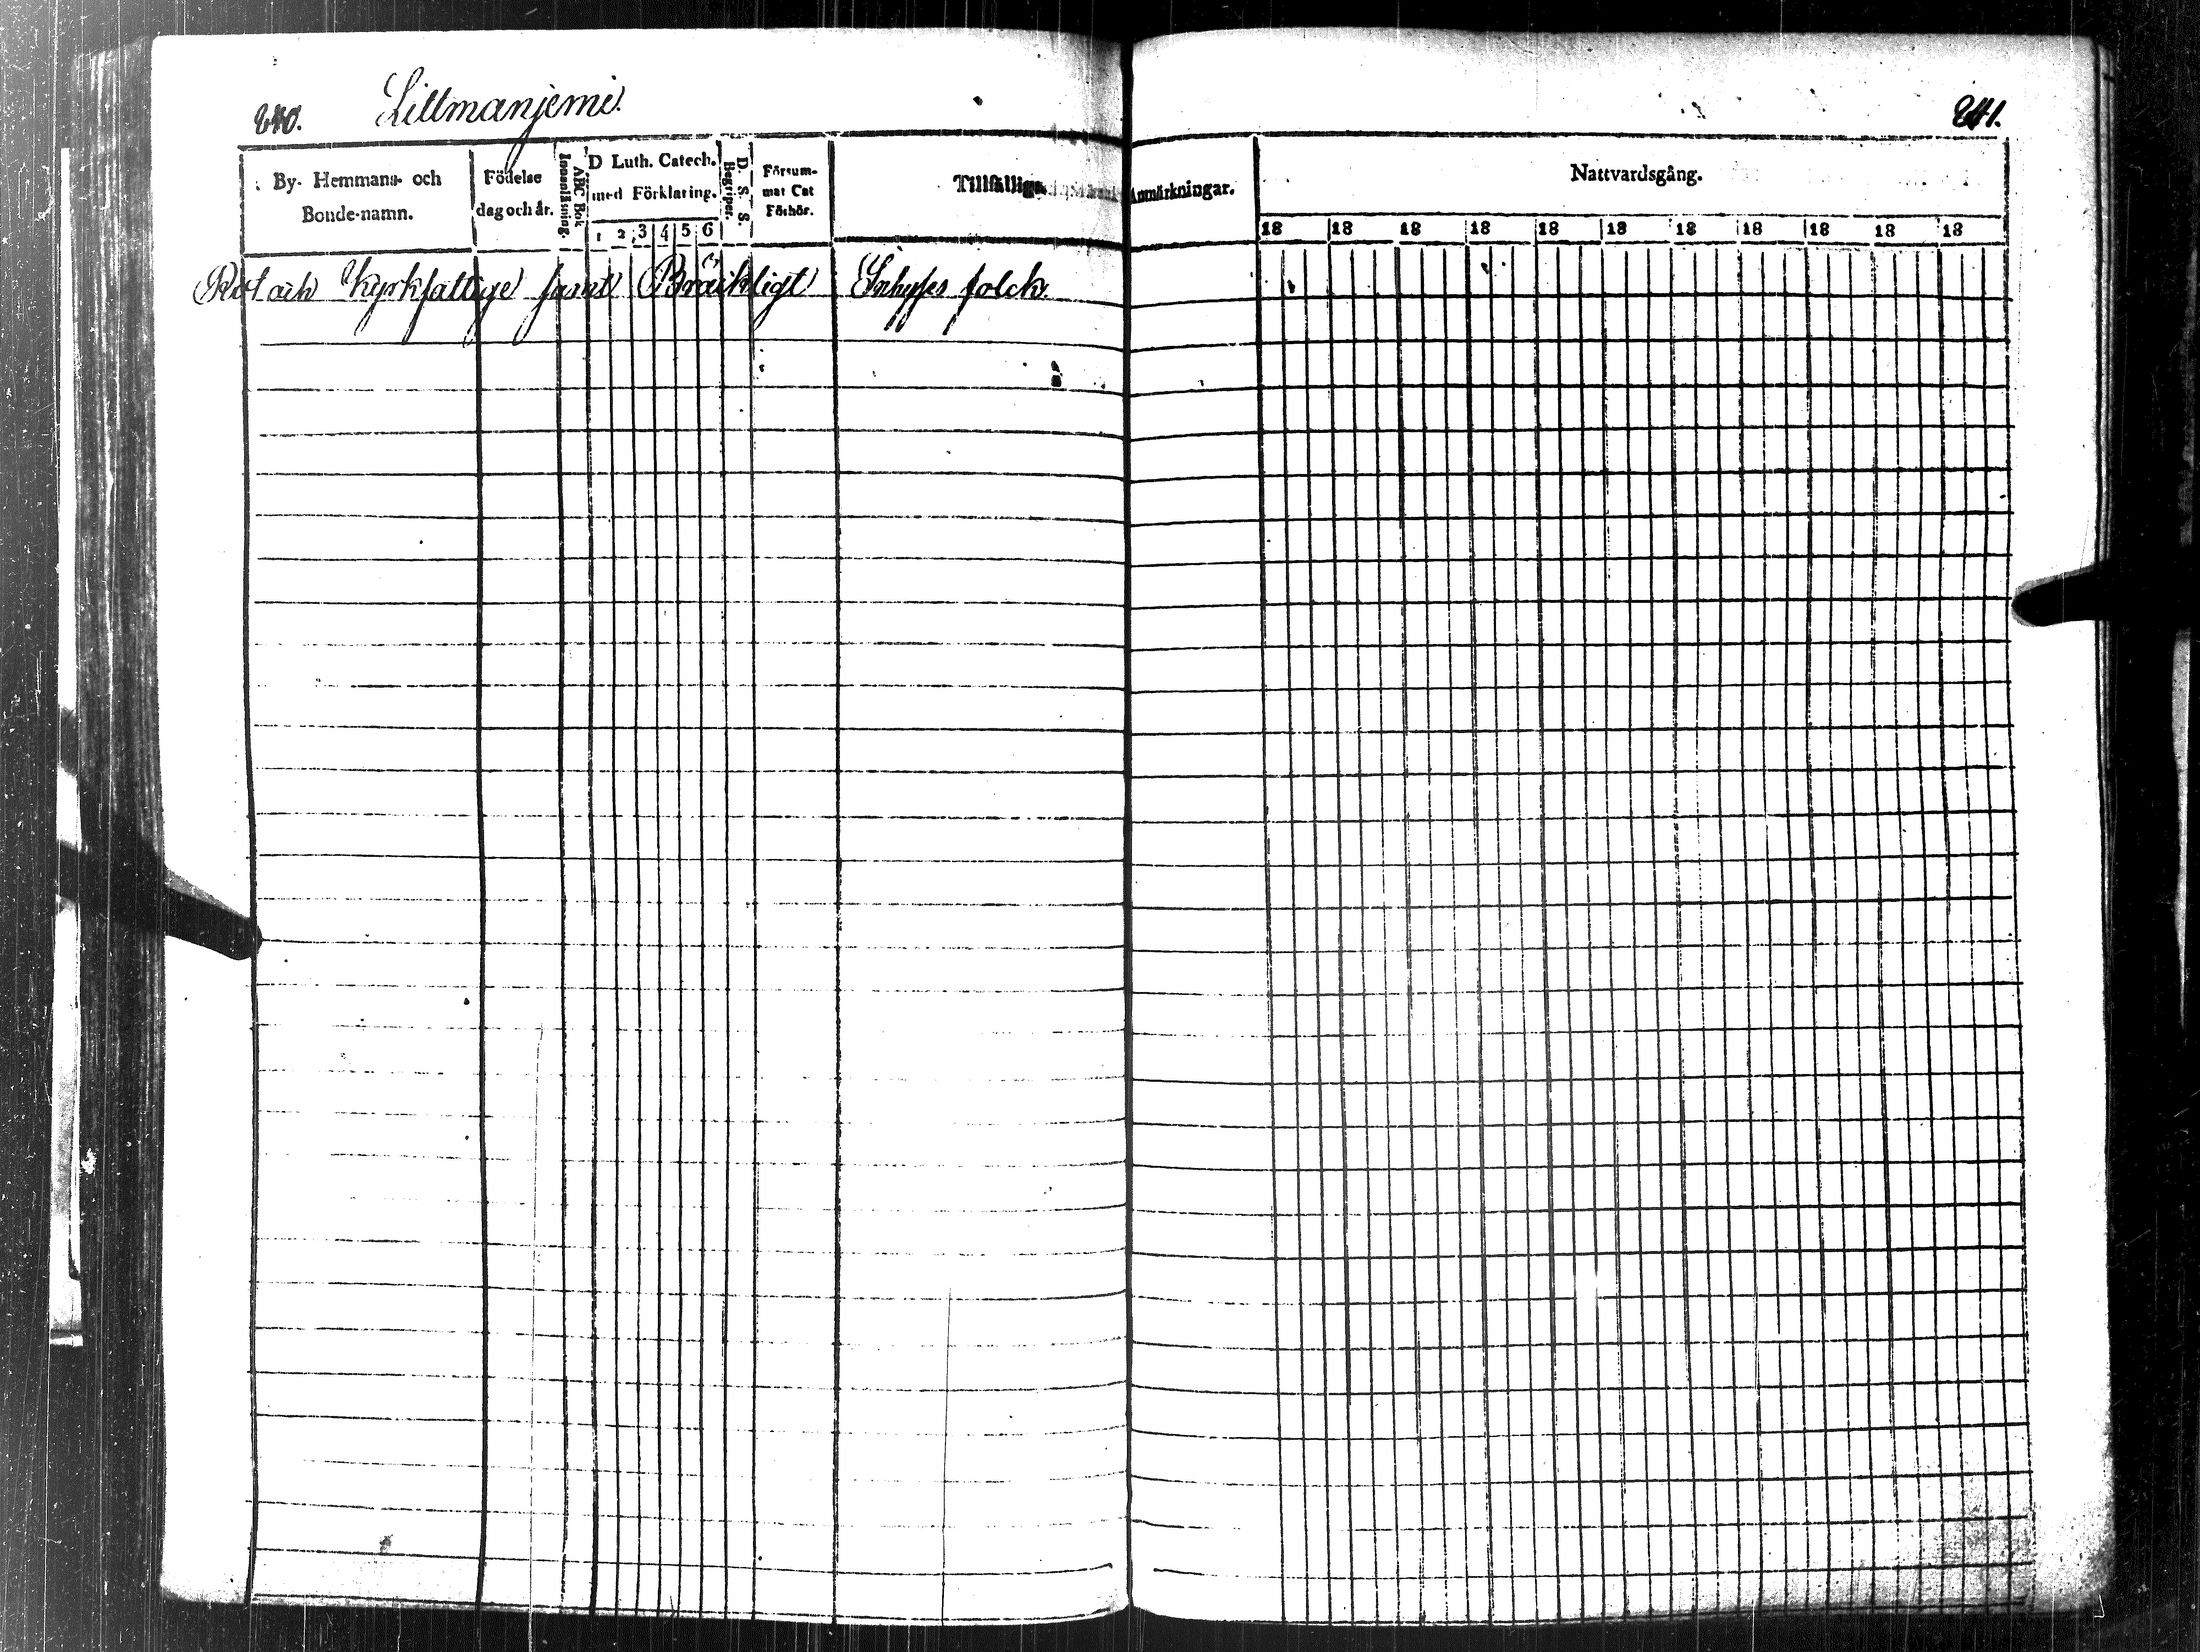 240. Littmanjemi.
By- Hemmans- och Bonde-namn.
Födelse dag och år.
Innanläsning.
ABC Bok
D Luth. Catech. med Förklaring.
1 2 3 4 5 6
D. S. S.
Begriper.
Försum- mat Cat Förhör.
Tillfällige
Rot och Kyrkfattige samt Bräckligt Inhyses folck.
241.
Anmärkningar.
Nattvardsgång.
18 18 18 18 18 18 18 18 18 18 18